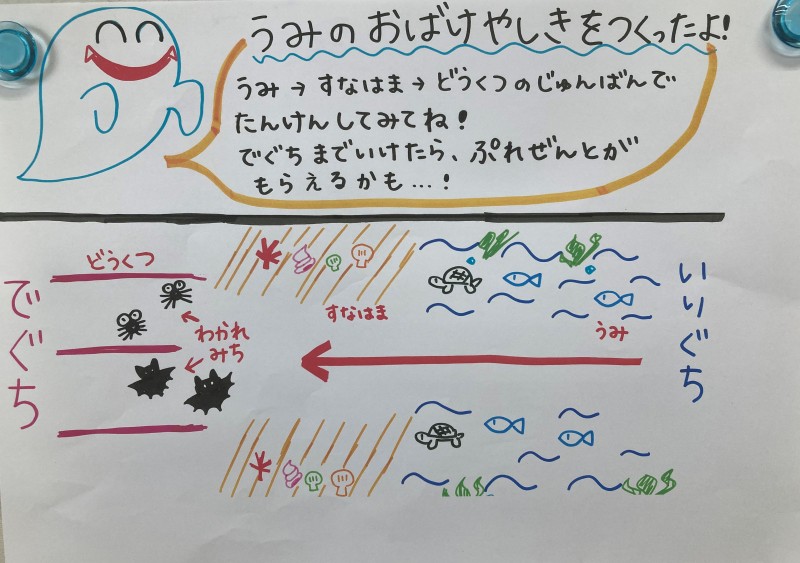 うみのおばけやしきをつくったよ!
うみ→すなはま→どうくつのじゅんばんで
たんけんしてみてね!
でぐちまでいけたら、ぷれぜんとが
もらえるかも…!
いりぐち
うみ
すなはま
どうくつ
わかれ
みち
でぐち